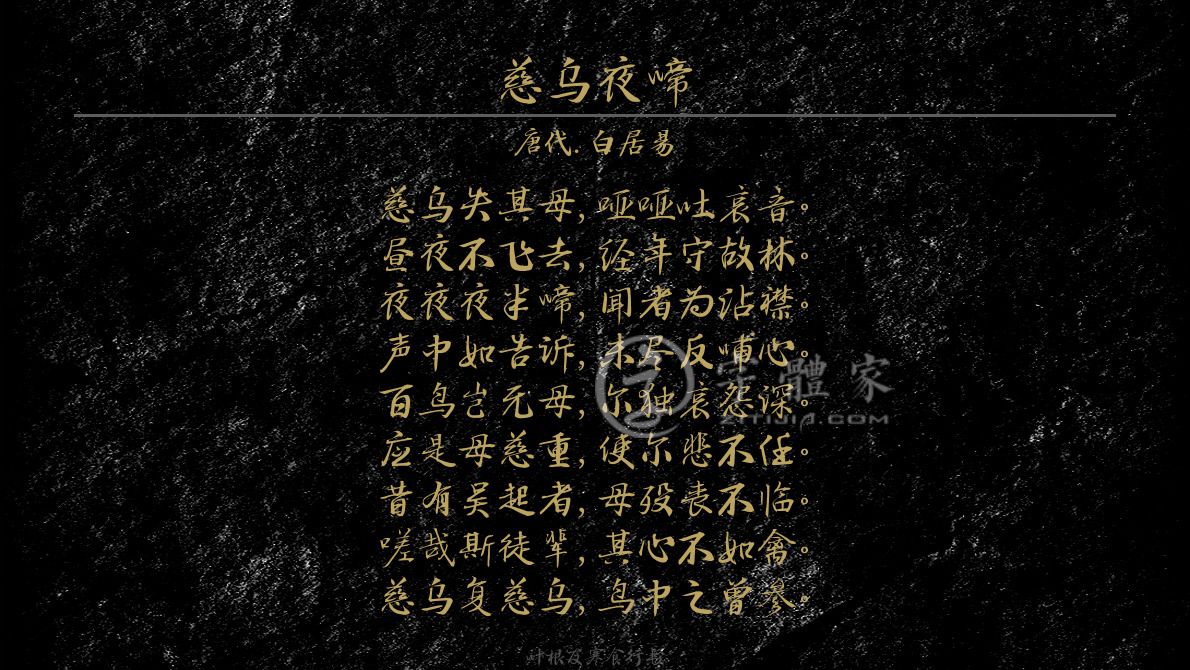 慈乌夜啼
唐代. 白居易
慈乌失其母, 哑哑吐哀音。
昼夜不飞去, 经年守故林。
夜夜夜半啼, 闻者为沾襟。
声中如告诉, 未尽反哺心。
百鸟岂无母, 尔独哀怨深。
应是母慈重, 使尔悲不任。
昔有吴起者, 母殁丧不临。
嗟哉斯徒辈, 其心不如禽。
慈乌复慈乌, 鸟中之曾参。
字體家
ZITIJIA.COM